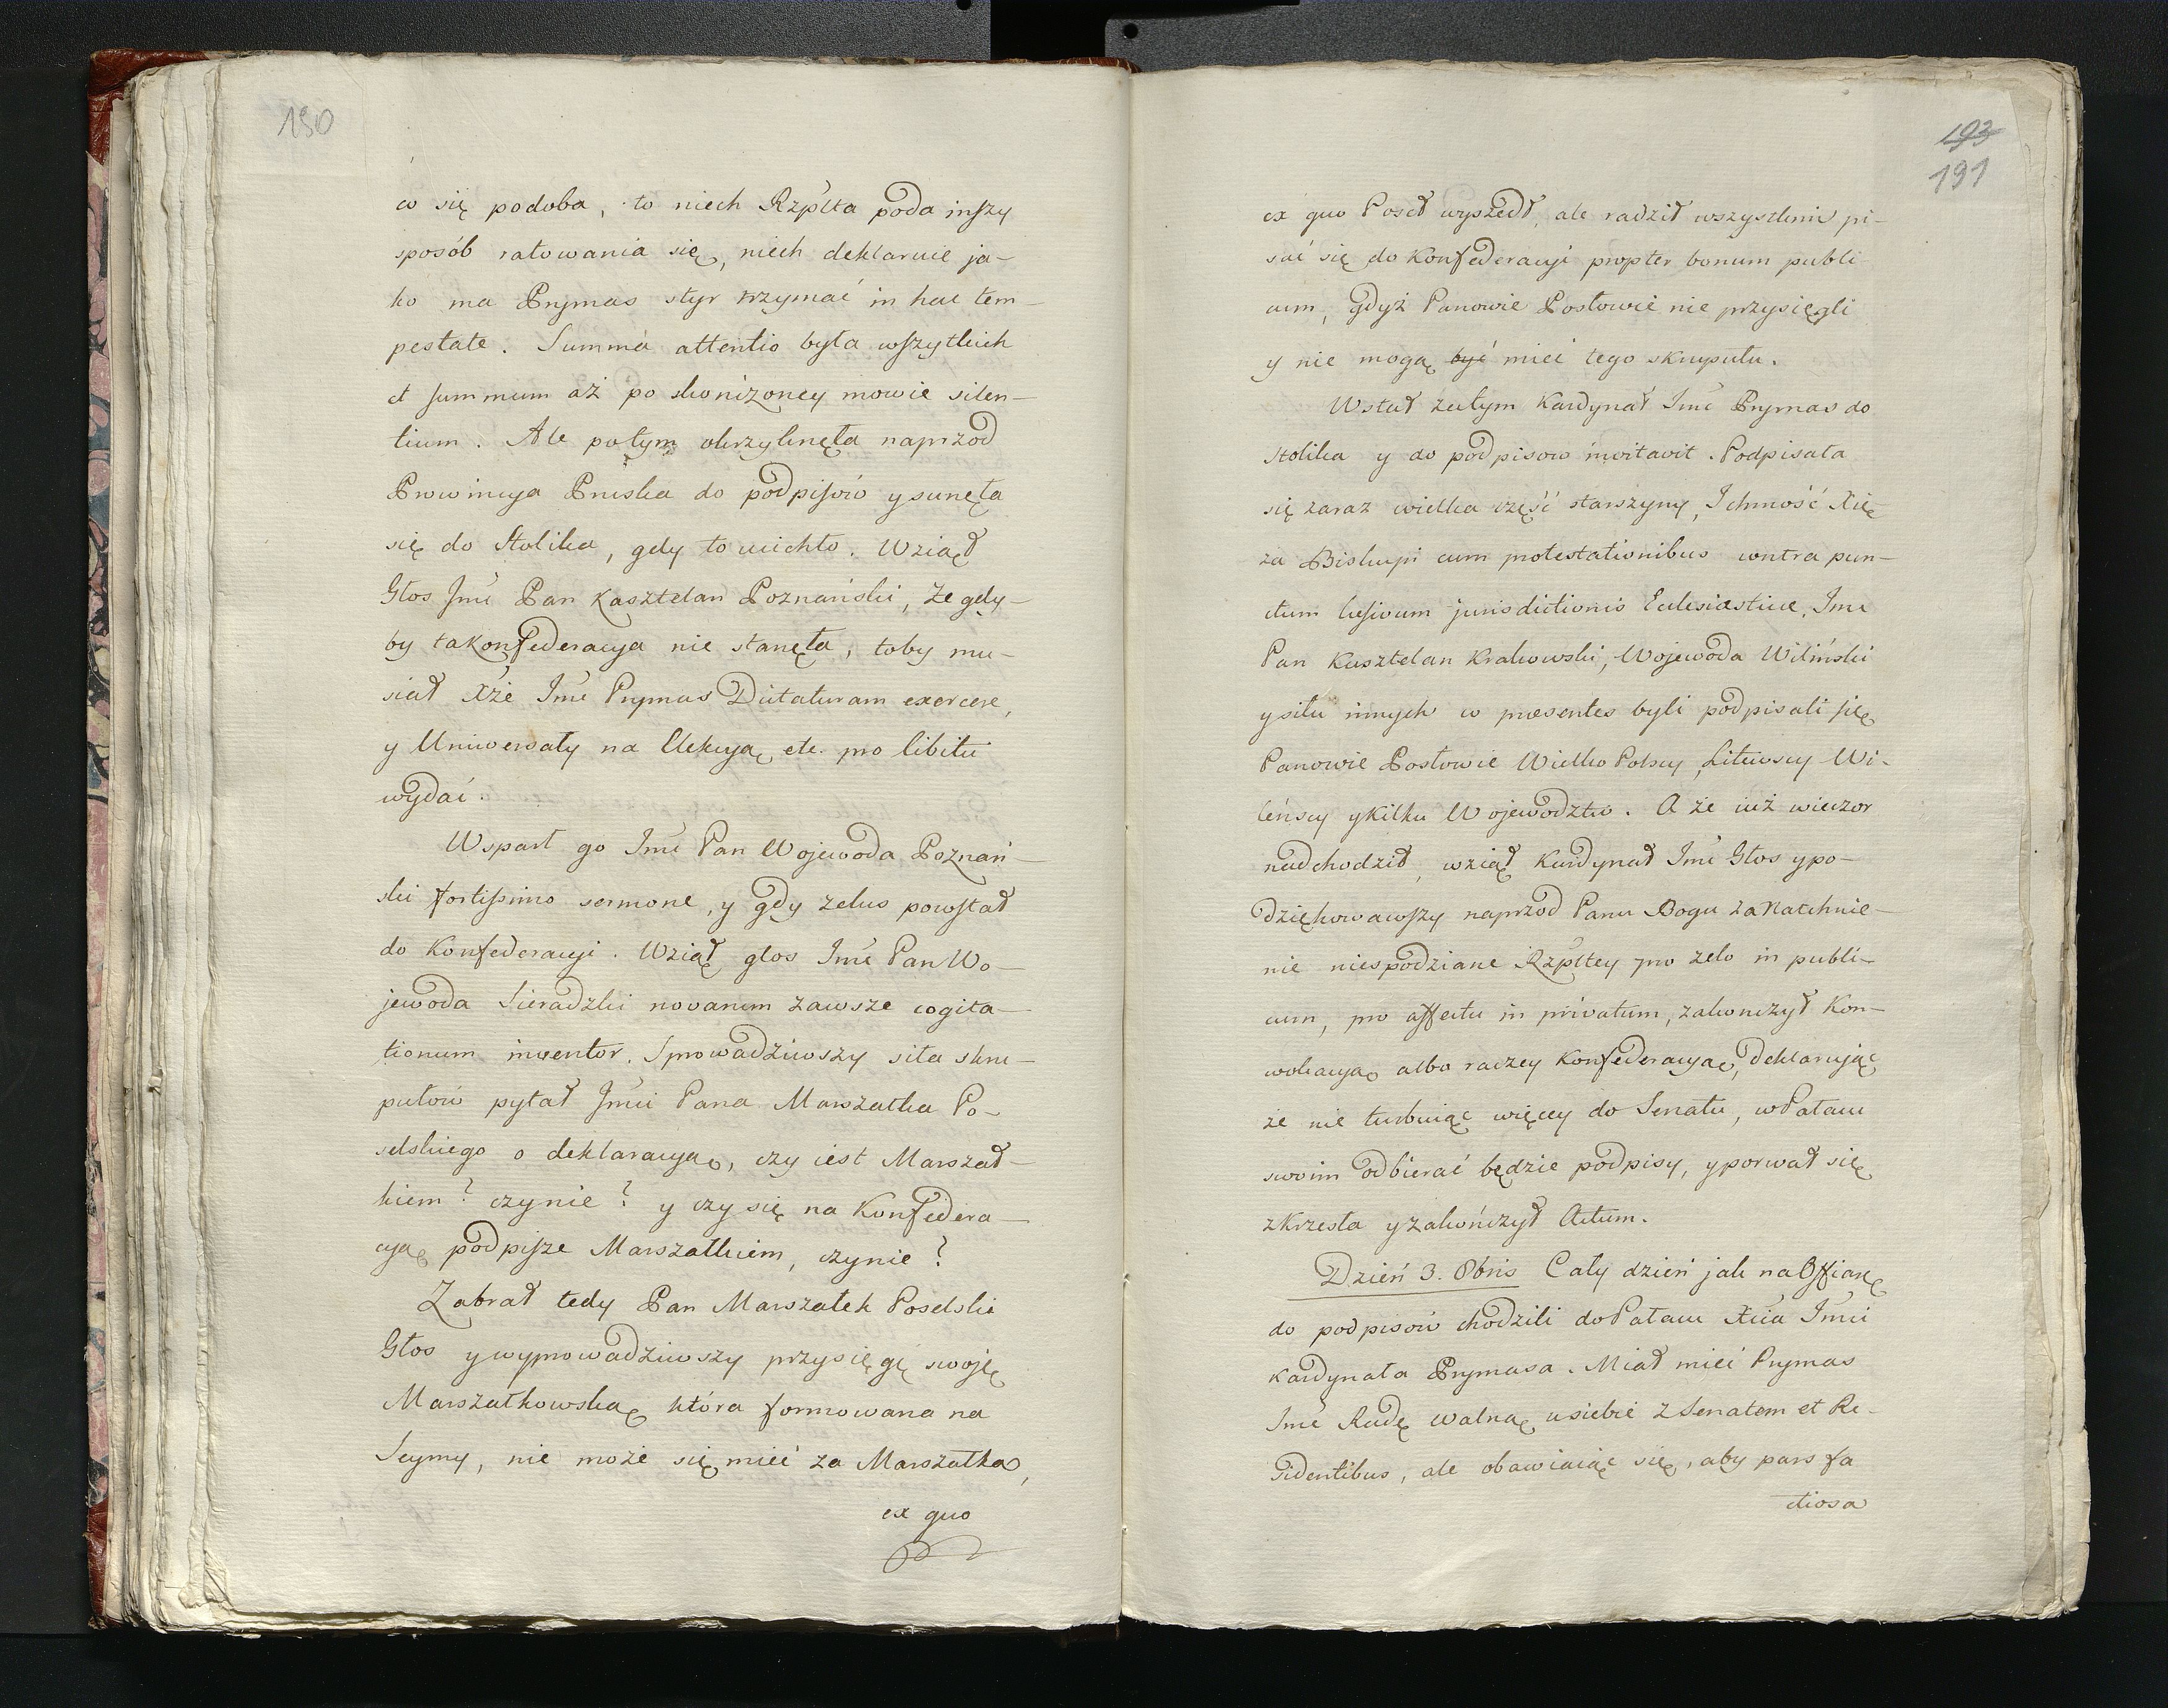 190
co się podoba, to niech Rzplta poda inszy
sposób ratowania się, niech deklaruie ja-
ko ma Prymas styr trzymać in hac tem-
pestate. Summa attentio była wszytkich
et summum aż po skończoney mowie silen-
tium. Ale potym okrzyknęła naprzod
Prowincya Pruska do podpisów y sunęła
się do Stolika, gdy to ucichło. Wziął
Głos Jmć Pan Kasztelan Poznański, że gdy-
by ta Konfederacya nie stanęła, toby mu-
siał Xże Jmć Prymas Dictaturam exercere,
y Uniwersały na Elekcyą etc. pro libitu
wydać.
Wsparł go Jmć Pan Wojewoda Poznań-
ski fortissimo sermone, y gdy zelus powstał
do Konfederacyi. Wziął głos Jmć Pan Wo-
jewoda Sieradzki novarum zawsze cogita-
tionum inventor. Sprowadziwszy siła skru-
pułów pytał Jmci Pana Marszałka Po-
selskiego o deklaracyą, czy iest Marszał-
kiem? czy nie? y czy się na Konfedera-
cyą podpisze Marszałkiem, czy nie?
Zabrał tedy Pan Marszałek Poselski
Głos y wyprowadziwszy przysięgę swoję
Marszałkowską która formowana na
Seymy, nie może się mieć za Marszałka,
ex quo
193
191
ex quo Poseł wyszedł, ale radził wszystkim pi-
sać się do Konfederacyi propter bonum publi-
cum, gdyż Panowie Posłowie nie przysięgli
y nie mogą być mieć tego skrupułu.
Wstał zatym Kardynał Jmć Prymas do
stolika y do podpisow invitavit. Podpisała
się zaraz wielka część starszyny, Ichmość Xię
ża Biskupi cum protestationibus contra pun-
ctum laesivum jurisdictionis Ecclesiasticae, Jmć
Pan Kasztelan Krakowski, Wojewoda Wiliński
y siła innych co praesentes byli podpisali się
Panowie Posłowie Wielko Polscy, Litewscy Wi-
leńscy y kilku Wojewodztw. A że iuż wieczor
nadchodził, wziął Kardynał Jmć Głos y po-
dziękowawszy naprzod Panu Bogu za natchnie-
nie niespodziane Rzpltey pro zelo in publi-
cum, pro affectu in privatum, zakonczył Kon-
wokacyą albo raczey Konfederacyą, deklarując
że nie turbuiąc więcey do Senatu, w Pałacu
swoim odbierać będzie podpisy, y porwał się
z Krzesła y zakończył Actum.
Dzień 3. 8bris Cały dzień jak na Offiarę
do podpisów chodzili do Pałacu Xcia Jmci
Kardynała Prymasa. Miał mieć Prymas
Jmć Radę walną u siebie z Senatem et Re-
sidentibus, ale obawiaiąc się, aby pars fa
ctiosa